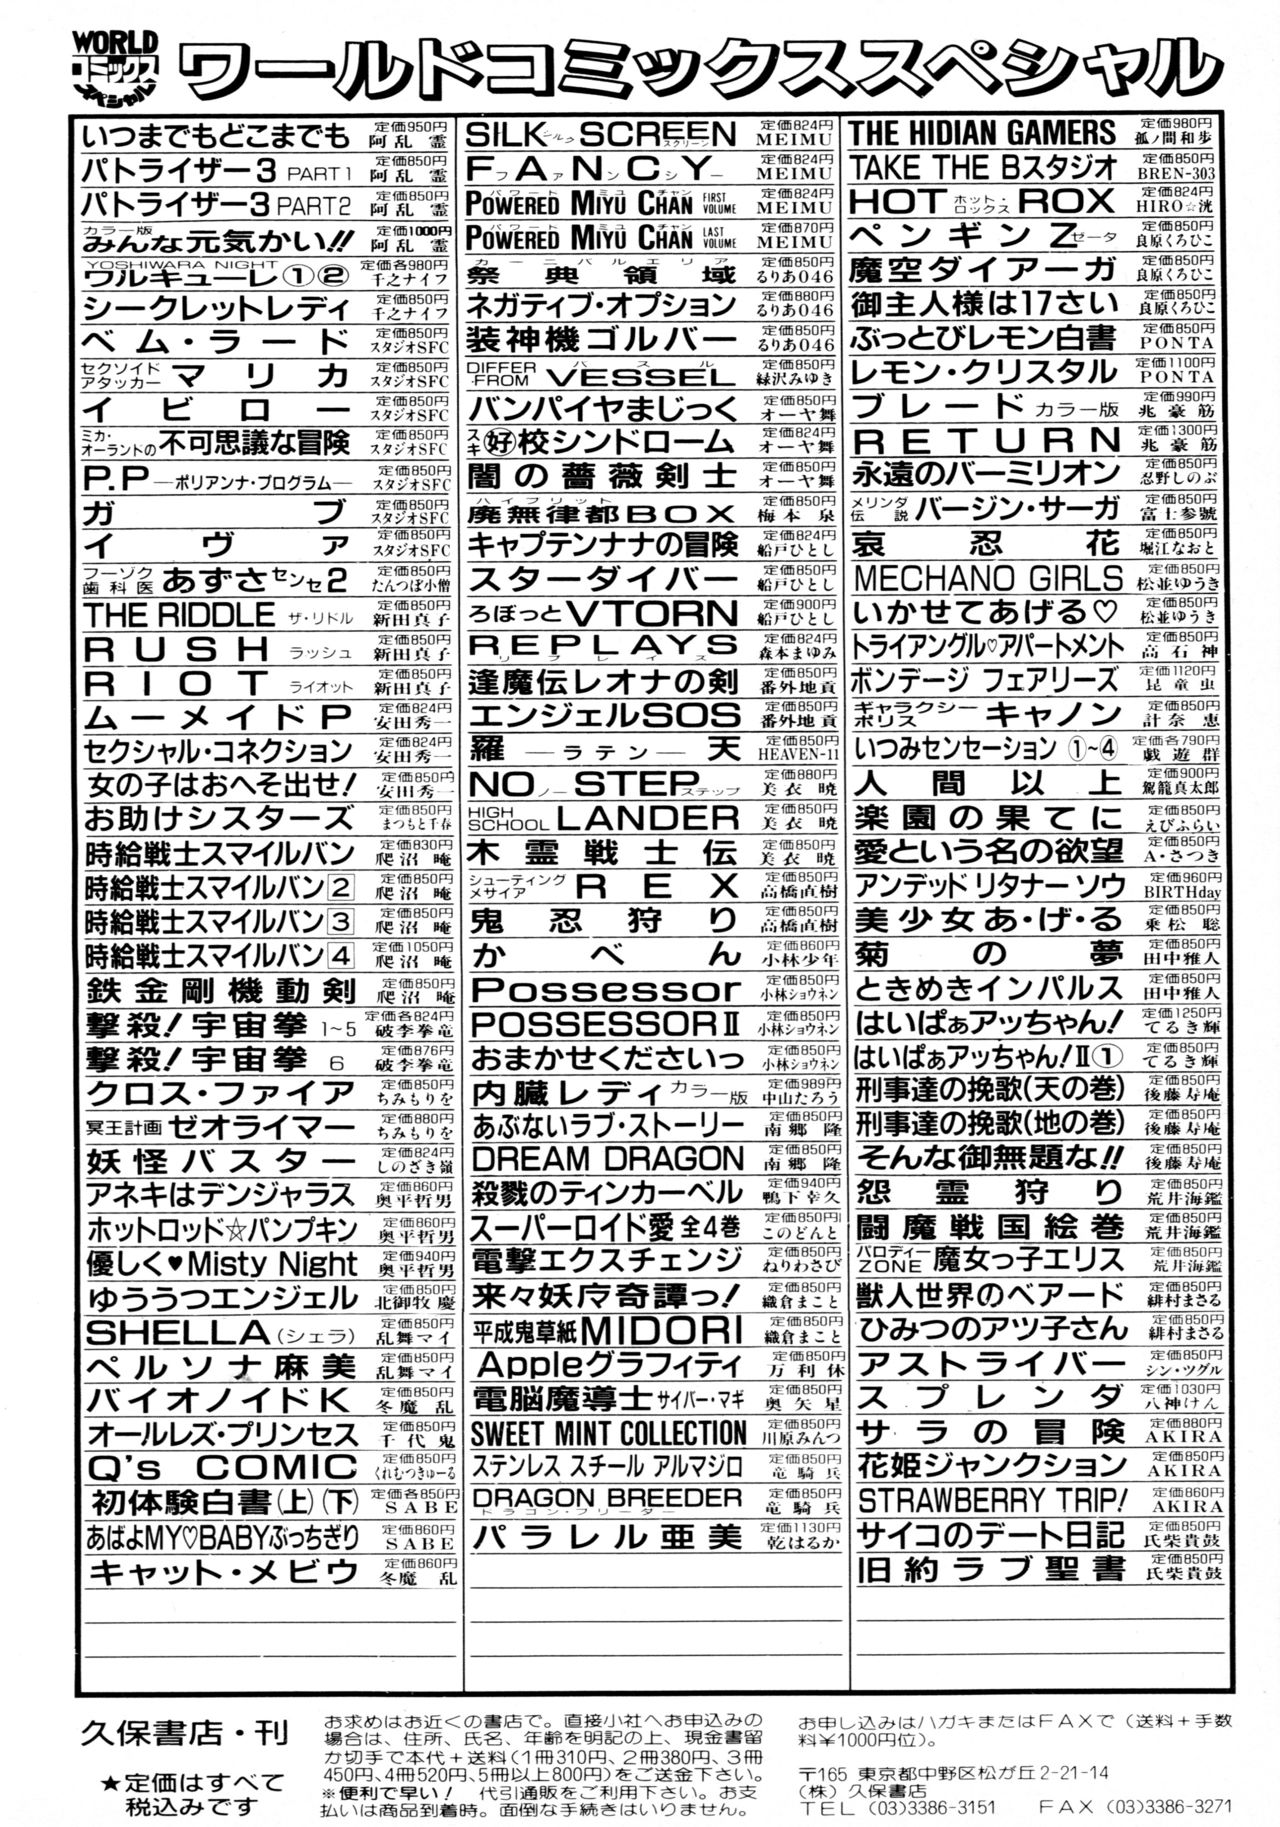 WORLD
コミックス
スペシャル
ワールドコミックススペシャル
いつまでもどこまでも 定価950円 阿乱霊
パトライザー3 PART1 定価850円 阿乱霊
パトライザー3 PART2 定価850円 阿乱霊
カラー版 みんな元気かい!! 定価1000円 阿乱霊
YOSHIWARA NIGHT ワルキューレ①② 定価各980円 千之ナイフ
シークレットレディ 定価850円 千之ナイフ
ベム・ラード 定価850円 スタジオSFC
セクソイドアタッカー マリカ 定価850円 スタジオSFC
イビロー 定価850円 スタジオSFC
ミカ・オーランドの 不可思議な冒険 定価850円 スタジオSFC
P.P ―ポリアンナ・プログラム― 定価850円 スタジオSFC
ガブ 定価850円 スタジオSFC
イヴァ 定価850円 スタジオSFC
フーゾク歯科医 あずさセンセ2 定価850円 たんつぼ小僧
THE RIDDLE ザ・リドル 定価850円 新田真子
RUSH ラッシュ 定価850円 新田真子
RIOT ライオット 定価850円 新田真子
ムーメイドP 定価824円 安田秀一
セクシャル・コネクション 定価824円 安田秀一
女の子はおへそ出せ! 定価850円 安田秀一
お助けシスターズ 定価850円 まつもと千春
時給戦士スマイルバン 定価830円 爬沼晻
時給戦士スマイルバン2 定価850円 爬沼晻
時給戦士スマイルバン3 定価850円 爬沼晻
時給戦士スマイルバン4 定価1050円 爬沼晻
鉄金剛機動剣 定価850円 爬沼晻
撃殺!宇宙拳 1〜5 定価各824円 破李拳竜
撃殺!宇宙拳 6 定価876円 破李拳竜
クロス・ファイア 定価850円 ちみもりを
冥王計画 ゼオライマー 定価880円 ちみもりを
妖怪バスター 定価824円 しのざき嶺
アネキはデンジャラス 定価860円 奥平哲男
ホットロッド☆パンプキン 定価860円 奥平哲男
優しく♥Misty Night 定価940円 奥平哲男
ゆううつエンジェル 定価850円 北御牧慶
SHELLA(シェラ) 定価850円 乱舞マイ
ペルソナ麻美 定価850円 乱舞マイ
バイオノイドK 定価850円 冬魔乱
オールレズ・プリンセス 定価850円 千代鬼
Q's COMIC 定価850円 くれむつきゅーる
初体験白書(上)(下) 定価各850円 SABE
あばよMY♡BABYぶっちぎり 定価860円 SABE
キャット・メビウ 定価860円 冬魔乱
SILK SCREEN シルク スクリーン 定価824円 MEIMU
FANCY ファンシー 定価824円 MEIMU
パワード ミユ チャン POWERED MIYU CHAN FIRST VOLUME 定価824円 MEIMU
パワード ミユ チャン POWERED MIYU CHAN LAST VOLUME 定価870円 MEIMU
カーニバルエリア 祭典領域 定価850円 るりあ046
ネガティブ・オプション 定価880円 るりあ046
装神機ゴルバー 定価850円 るりあ046
DIFFER-FROM ベスル VESSEL 定価850円 緑沢みゆき
バンパイヤまじっく 定価850円 オーヤ舞
スキ ㊝校シンドローム 定価824円 オーヤ舞
闇の薔薇剣士 定価850円 オーヤ舞
ハイブリット 廃無律都BOX 定価850円 梅本泉
キャプテンナナの冒険 定価824円 船戸ひとし
スターダイバー 定価850円 船戸ひとし
ろぼっとVTORN 定価900円 船戸ひとし
REPLAYS リプレイス 定価824円 森本まゆみ
逢魔伝レオナの剣 定価850円 番外地貢
エンジェルSOS 定価850円 番外地貢
羅 ―ラテン― 天 定価850円 HEAVEN-11
NO STEP ノー ステップ 定価880円 美衣暁
HIGH SCHOOL LANDER 定価850円 美衣暁
木霊戦士伝 定価850円 美衣暁
シューティング メサイア REX 定価850円 高橋直樹
鬼忍狩り 定価850円 高橋直樹
かべん 定価860円 小林少年
Possessor 定価850円 小林ショウネン
POSSESSOR II 定価850円 小林ショウネン
おまかせくださいっ 定価850円 小林ショウネン
内臓レディ カラー版 定価989円 中山たろう
あぶないラブ・ストーリー 定価850円 南郷隆
DREAM DRAGON 定価850円 南郷隆
殺戮のティンカーベル 定価940円 鴨下幸久
スーパーロイド愛 全4巻 定価850円 このどんと
電撃エクスチェンジ 定価850円 ねりわさび
来々妖庁奇譚っ! 定価850円 織倉まこと
平成鬼草紙MIDORI 定価850円 織倉まこと
Appleグラフィティ 定価850円 万利休
電脳魔導士 サイバー・マギ 定価850円 奥矢星
SWEET MINT COLLECTION 定価850円 川原みんつ
ステンレス スチール アルマジロ 定価850円 竜騎兵
DRAGON BREEDER ドラゴン・ブリーダー 定価850円 竜騎兵
パラレル亜美 定価1130円 乾はるか
THE HIDIAN GAMERS 定価980円 孤ノ間和歩
TAKE THE Bスタジオ 定価850円 BREN-303
HOT ROX ホット・ロックス 定価824円 HIRO☆洸
ペンギンZ ゼータ 定価850円 良原くろひこ
魔空ダイアーガ 定価850円 良原くろひこ
御主人様は17さい 定価850円 良原くろひこ
ぶっとびレモン白書 定価850円 PONTA
レモン・クリスタル 定価1100円 PONTA
ブレード カラー版 定価990円 兆豪筋
RETURN 定価1300円 兆豪筋
永遠のバーミリオン 定価850円 忍野しのぶ
メリンダ伝説 バージン・サーガ 定価850円 富士参號
哀忍花 定価850円 堀江なおと
MECHANO GIRLS 定価850円 松並ゆうき
いかせてあげる♡ 定価850円 松並ゆうき
トライアングル♡アパートメント 定価850円 高石神
ボンデージ フェアリーズ 定価1120円 昆童虫
ギャラクシーポリス キャノン 定価850円 計奈恵
いつみセンセーション ①〜④ 定価各790円 戯遊群
人間以上 定価900円 駕籠真太郎
楽園の果てに 定価850円 えびふらい
愛という名の欲望 定価850円 A・さつき
アンデッド リタナー ソウ 定価960円 BIRTHday
美少女あ・げ・る 定価850円 乗松聡
菊の夢 定価850円 田中雅人
ときめきインパルス 定価850円 田中雅人
はいぱぁアッちゃん! 定価1250円 てるき輝
はいぱぁアッちゃん!II① 定価850円 てるき輝
刑事達の挽歌(天の巻) 定価850円 後藤寿庵
刑事達の挽歌(地の巻) 定価850円 後藤寿庵
そんな御無題な!! 定価850円 後藤寿庵
怨霊狩り 定価850円 荒井海鑑
闘魔戦国絵巻 定価850円 荒井海鑑
パロディーZONE 魔女っ子エリス 定価850円 荒井海鑑
獣人世界のベアード 定価850円 緋村まさる
ひみつのアツ子さん 定価850円 緋村まさる
アストライバー 定価850円 シン・ツグル
スプレンダ 定価1030円 八神けん
サラの冒険 定価880円 AKIRA
花姫ジャンクション 定価850円 AKIRA
STRAWBERRY TRIP! 定価860円 AKIRA
サイコのデート日記 定価850円 氏柴貴鼓
旧約ラブ聖書 定価850円 氏柴貴鼓
久保書店・刊
★定価はすべて
税込みです
お求めはお近くの書店で。直接小社へお申込みの
場合は、住所、氏名、年齢を明記の上、現金書留
か切手で本代+送料(1冊310円、2冊380円、3冊
450円、4冊520円、5冊以上800円)をご送金下さい。
※便利で早い! 代引通販をご利用下さい。お支
払いは商品到着時。面倒な手続きはいりません。
お申し込みはハガキまたはFAXで(送料+手数
料¥1000円位)。
〒165 東京都中野区松が丘2-21-14
(株)久保書店
TEL (03)3386-3151 FAX (03)3386-3271